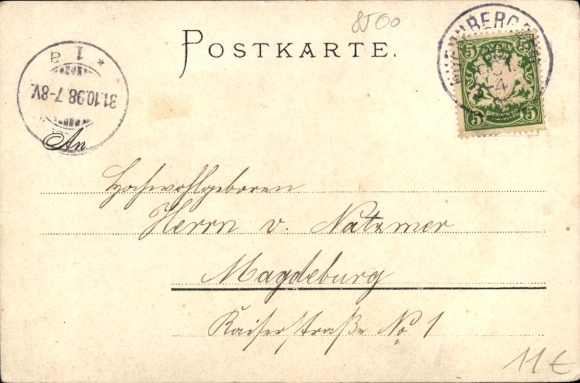 8500
POSTKARTE.
NUERNBERG
5 5
5 5
31.10.98. 7-8V.
1 a
An
Hochwohlgeboren
Herrn v. Natzmer
Magdeburg
Kaiserstraße No 1
11€